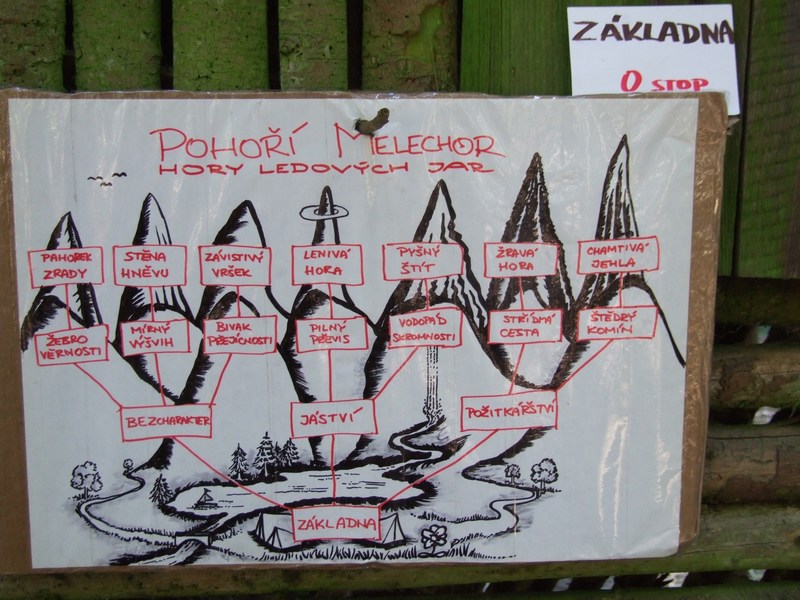 ZÁKLADNA
0 STOP
POHOŘÍ MELECHOR
HORY LEDOVÝCH JAR
PAHOREK
ZRADY
STĚNA
HNĚVU
ZÁVISTIVÝ
VRŠEK
LENIVÁ
HORA
PYŠNÝ
ŠTÍT
ŽRAVÁ
HORA
CHAMTIVÁ
JEHLA
ŽEBRO
VĚRNOSTI
MÍRNÝ
VÝŠVIH
BIVAK
PŘEJÍCNOSTI
PILNÝ
PŘEVIS
VODOPÁD
SKROMNOSTI
STŘÍDMÁ
CESTA
ŠTĚDRÝ
KOMÍN
BEZCHARAKTER
JÁSTVÍ
POŽITKÁŘSTVÍ
ZÁKLADNA